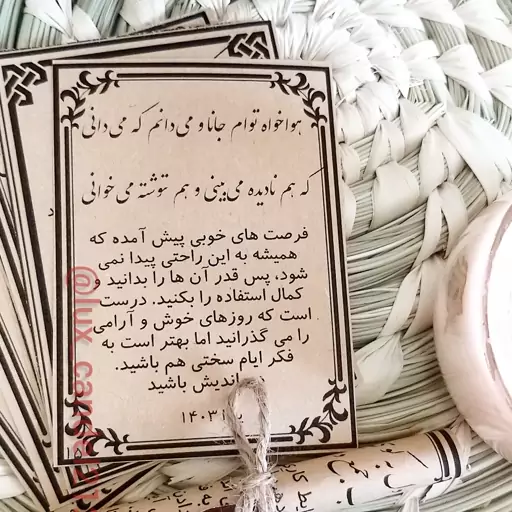 هواخواه توام جانا و می دانم که می دانی
که هم نادیده می بینی و هم ننوشته می خوانی
فرصت های خوبی پیش آمده که
همیشه به این راحتی پیدا نمی
شود، پس قدر آن ها را بدانید و
کمال استفاده را بکنید. درست
است که روزهای خوش و آرامی
را می گذرانید اما بهتر است به
فکر ایام سختی هم باشید.
اندیش باشید
۱۴۰۳